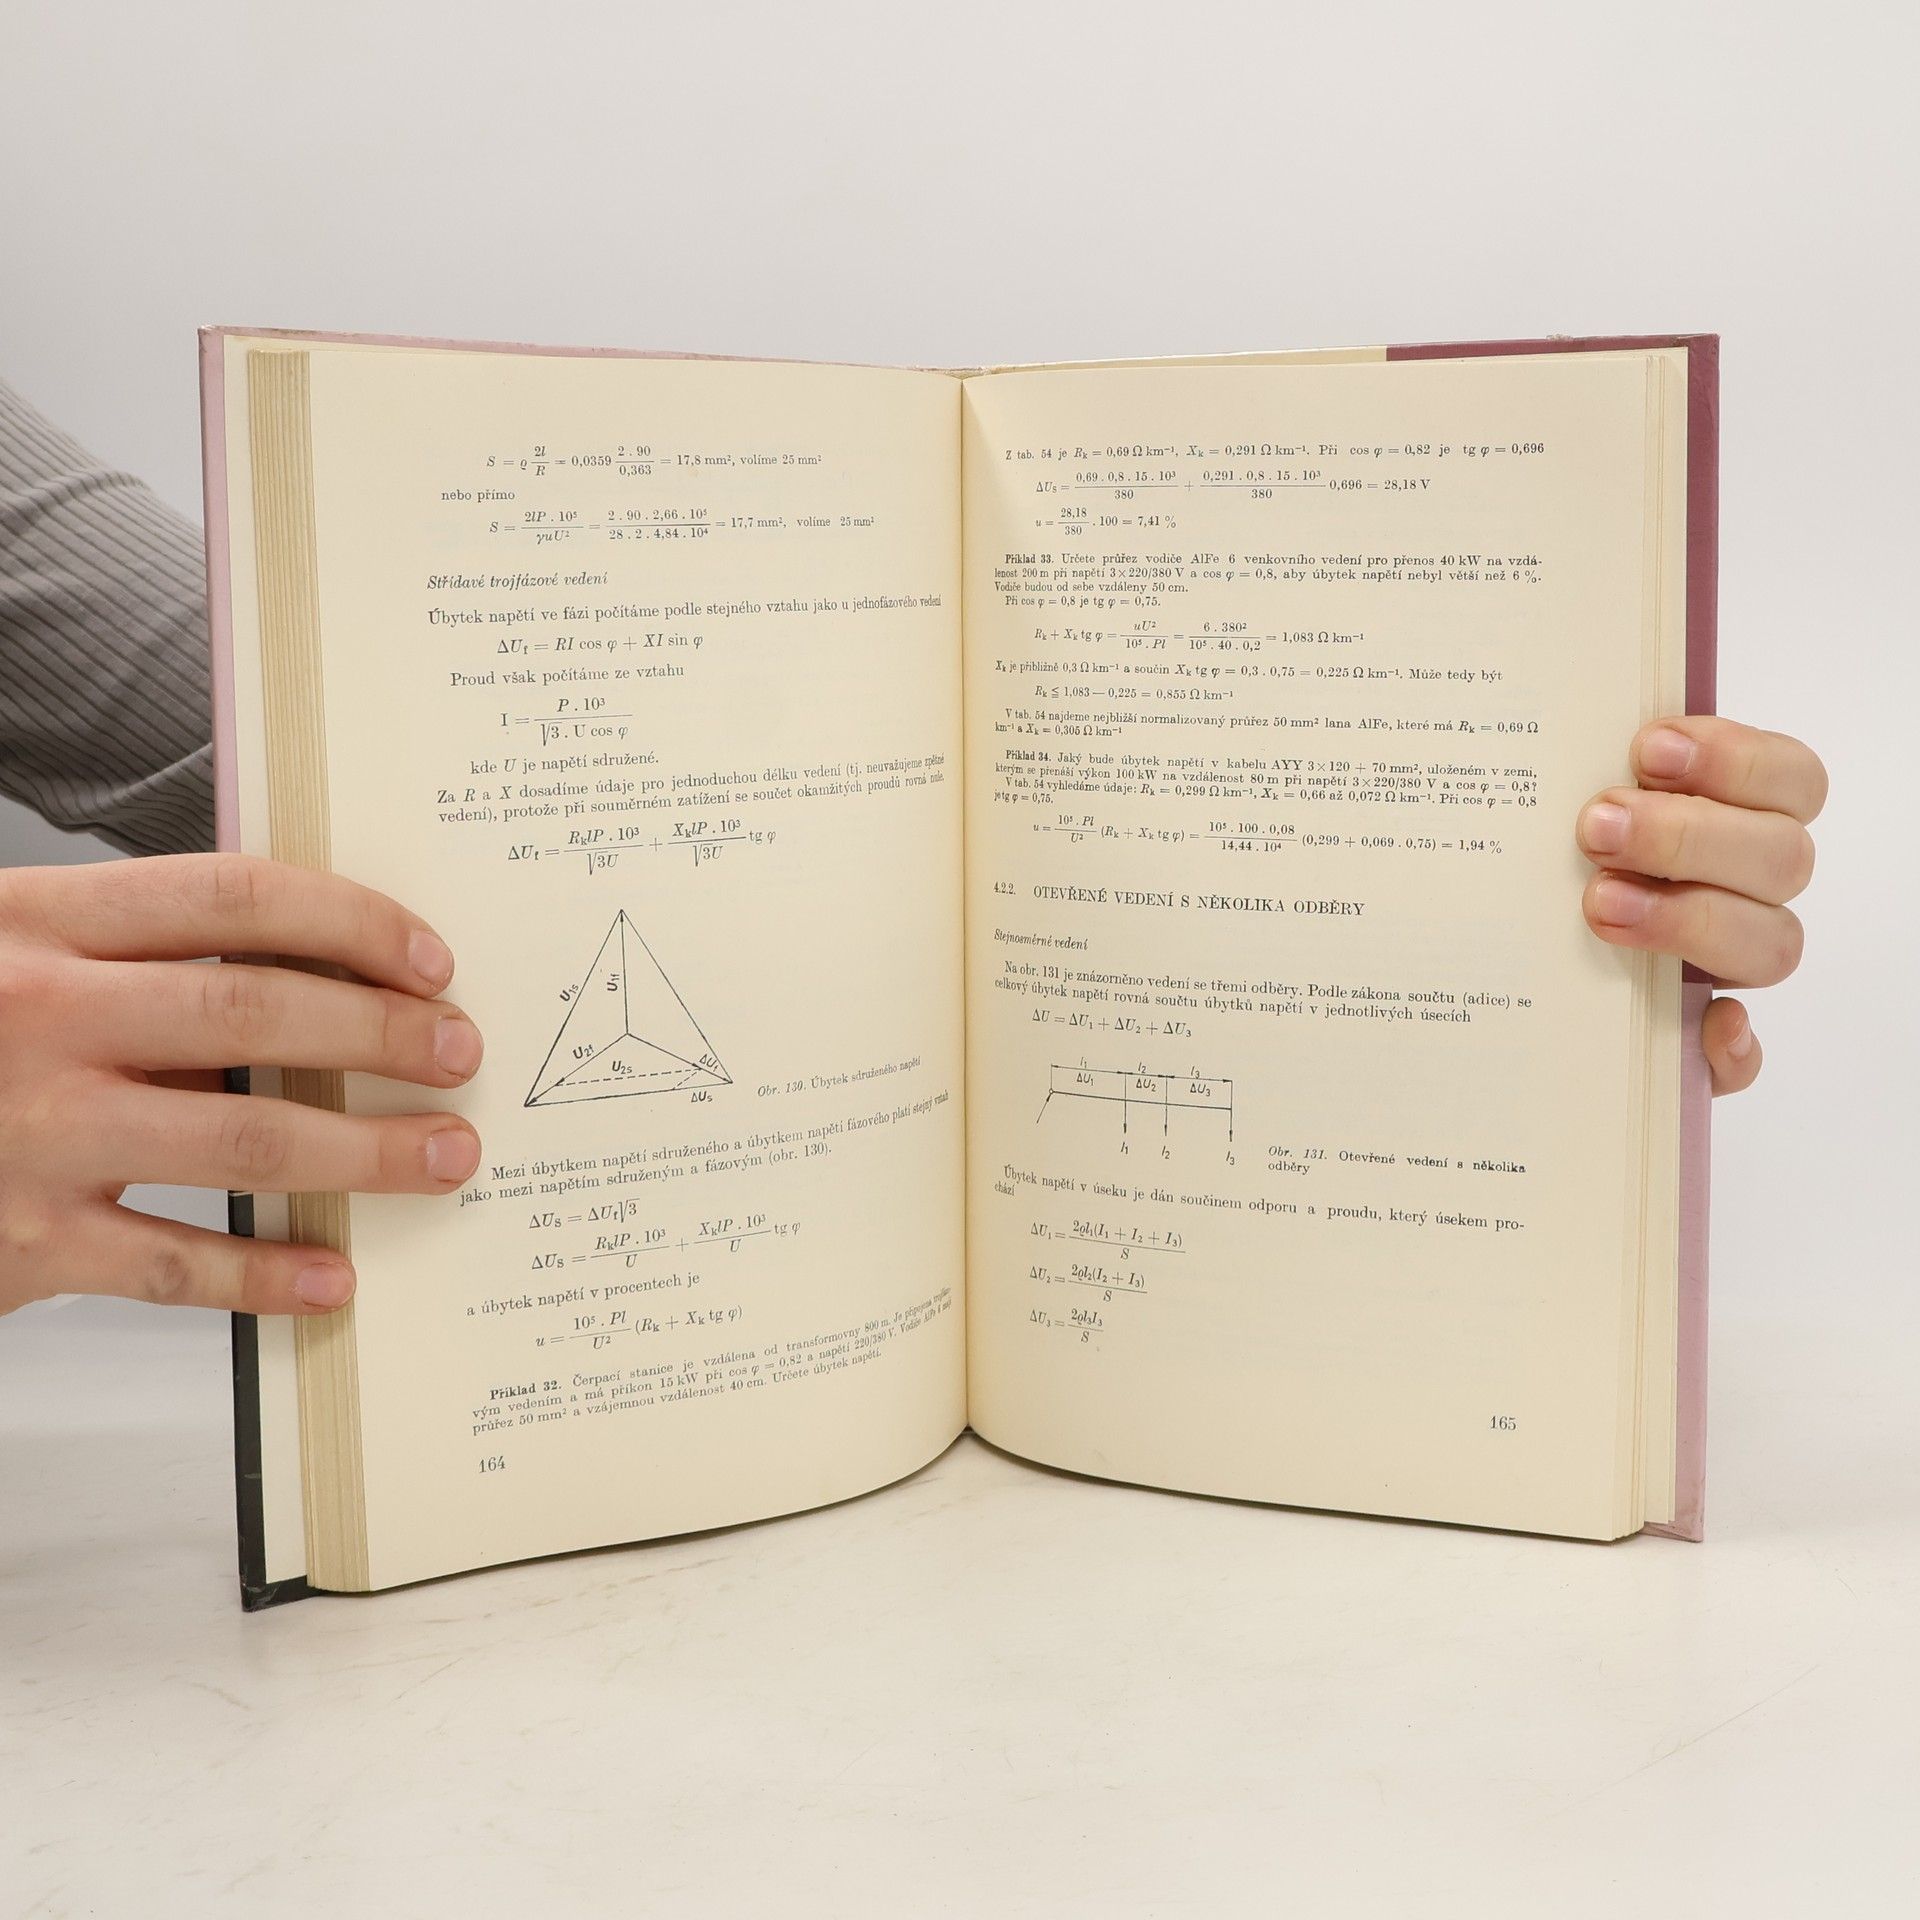 S = ϱ 2l/R = 0,0359 2 . 90/0,363 = 17,8 mm², volíme 25 mm²
nebo přímo
S = 2lP . 10⁵/γuU² = 2 . 90 . 2,66 . 10⁵/28 . 2 . 4,84 . 10⁴ = 17,7 mm², volíme 25 mm²
Střídavé trojfázové vedení
Úbytek napětí ve fázi počítáme podle stejného vztahu jako u jednofázového vedení
ΔUf = RI cos φ + XI sin φ
Proud však počítáme ze vztahu
I = P . 10³/√3 . U cos φ
kde U je napětí sdružené.
Za R a X dosadíme údaje pro jednoduchou délku vedení (tj. neuvažujeme zpětné
vedení), protože při souměrném zatížení se součet okamžitých proudů rovná nule.
ΔUf = RklP . 10³/√3U + XklP . 10³/√3U tg φ
U1s
U1f
U2f
U2s
ΔUf
ΔUs
Obr. 130. Úbytek sdruženého napětí
Mezi úbytkem napětí sdruženého a úbytkem napětí fázového platí stejný vztah
jako mezi napětím sdruženým a fázovým (obr. 130).
ΔUS = ΔUf√3
ΔUS = RklP . 10³/U + XklP . 10³/U tg φ
a úbytek napětí v procentech je
u = 10⁵ . Pl/U² (Rk + Xk tg φ)
Příklad 32. Čerpací stanice je vzdálena od transformovny 800 m. Je připojena trojfázo-
vým vedením a má příkon 15 kW při cos φ = 0,82 a napětí 220/380 V. Vodiče AlFe 6 mají
průřez 50 mm² a vzájemnou vzdálenost 40 cm. Určete úbytek napětí.
164
Z tab. 54 je Rk = 0,69 Ω km⁻¹, Xk = 0,291 Ω km⁻¹. Při cos φ = 0,82 je tg φ = 0,696
ΔUS = 0,69 . 0,8 . 15 . 10³/380 + 0,291 . 0,8 . 15 . 10³/380 0,696 = 28,18 V
u = 28,18/380 . 100 = 7,41 %
Příklad 33. Určete průřez vodiče AlFe 6 venkovního vedení pro přenos 40 kW na vzdá-
lenost 200 m při napětí 3×220/380 V a cos φ = 0,8, aby úbytek napětí nebyl větší než 6 %.
Vodiče budou od sebe vzdáleny 50 cm.
Při cos φ = 0,8 je tg φ = 0,75.
Rk + Xk tg φ = uU²/10⁵ . Pl = 6 . 380²/10⁵ . 40 . 0,2 = 1,083 Ω km⁻¹
Xk je přibližně 0,3 Ω km⁻¹ a součin Xk tg φ = 0,3 . 0,75 = 0,225 Ω km⁻¹. Může tedy být
Rk ≦ 1,083 — 0,225 = 0,855 Ω km⁻¹
V tab. 54 najdeme nejbližší normalizovaný průřez 50 mm² lana AlFe, které má Rk = 0,69 Ω
km⁻¹ a Xk = 0,305 Ω km⁻¹
Příklad 34. Jaký bude úbytek napětí v kabelu AYY 3×120 + 70 mm², uloženém v zemi,
kterým se přenáší výkon 100 kW na vzdálenost 80 m při napětí 3×220/380 V a cos φ = 0,8?
V tab. 54 vyhledáme údaje: Rk = 0,299 Ω km⁻¹, Xk = 0,66 až 0,072 Ω km⁻¹. Při cos φ = 0,8
je tg φ = 0,75.
u = 10⁵ . Pl/U² (Rk + Xk tg φ) = 10⁵ . 100 . 0,08/14,44 . 10⁴ (0,299 + 0,069 . 0,75) = 1,94 %
4.2.2. OTEVŘENÉ VEDENÍ S NĚKOLIKA ODBĚRY
Stejnosměrné vedení
Na obr. 131 je znázorněno vedení se třemi odběry. Podle zákona součtu (adice) se
celkový úbytek napětí rovná součtu úbytků napětí v jednotlivých úsecích
ΔU = ΔU₁ + ΔU₂ + ΔU₃
l₁ l₂ l₃
ΔU₁ ΔU₂ ΔU₃
I₁ I₂ I₃
Obr. 131. Otevřené vedení s několika
odběry
Úbytek napětí v úseku je dán součinem odporu a proudu, který úsekem pro-
chází
ΔU₁ = 2ϱl₁(I₁ + I₂ + I₃)/S
ΔU₂ = 2ϱl₂(I₂ + I₃)/S
ΔU₃ = 2ϱl₃I₃/S
165